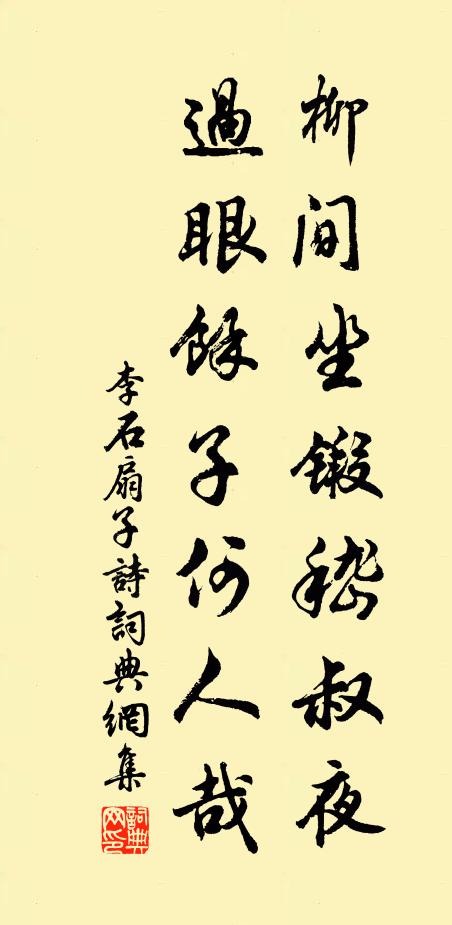 柳间坐鍛嵇叔夜
過眼餘子何人哉
李石扇子詩詞典網集
詞典
網印